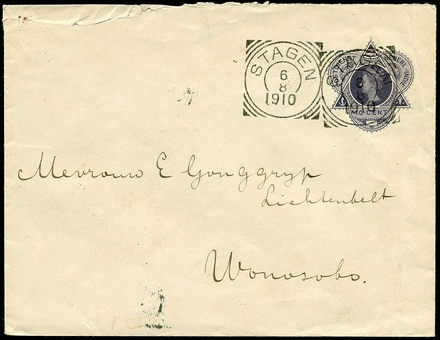 STAGEN
6
8
1910
STAGEN
6
8
1910
10 CENT
Mevrouw E Gonggryp
Lichtenbelt
Wonosobo.